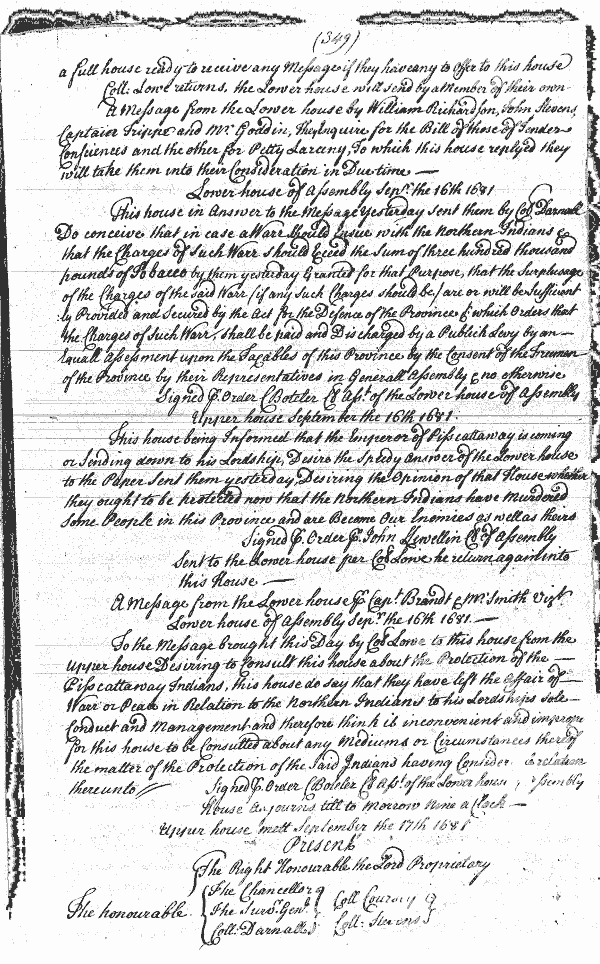 (349)
a full house ready to receive any Message if they have any to Offer to this house
Coll: Lowe returns, the Lower house will send by a Member of their own
A Message from the Lower house by William Richardson, John Stevens,
Captain Trippe and Mr Goddin, they Enquire for the Bill of those of Tender
Consciences and the other for Petty Larceny, To which this house replyed they
will take them into their Consideration in Due time —
Lower house of Assembly Sepr. the 16th 1681
This house in Answer to the Message Yesterday sent them by Coll Darnall
Do conceive that in case a Warr should Ensue with the Northern Indians &
that the Charges of Such Warr should Exceed the Sum of three hundred thousand
pounds of Tobacco by them yesterday Granted for that Purpose, that the Surplusage
of the Charges of the said Warr (if any Such Charges should be) are or will be Sufficient
ly Provided and Secured by the Act for the Defence of the Province &c which Orders that
the Charges of Such Warr, shall be paid and Discharged by a Publick Levy by an —
Equall Assessment upon the Taxables of this Province by the Consent of the Freemen
of the Province by their Representatives in Generall Assembly & no otherwise
Signed P. Order C Boteler Cl Ass. of the Lower house of Assembly
Upper house September the 16th 1681.
This house being Informed that the Emperor of Pisscattaway is coming
or Sending down to his Lordship, Desire the Speedy answer of the Lower house
to the Paper Sent them yesterday, Desiring the Opinion of that House whether
they ought to be protected now that the Northern Indians have Murdered
Some People in this Province and are Become Our Enemies as well as theirs
Signed P. Order P. John Llewellin Cl of Assembly
Sent to the Lower house per Coll Lowe he return again into
this House —
A Message from the Lower house P. Capt. Brandt & Mr. Smith Vizt.
Lower house of Assembly Sepr. the 16th 1681. —
To the Message brought this Day by Coll Lowe to this house from the
Upper house Desiring to Consult this house about the Protection of the —
Pisscattaway Indians, this house do say that they have left the Affair of
Warr or Peace in Relation to the Northern Indians to his Lordships Sole
Conduct and Management and therefore think it inconvenient and improper
for this house to be Consulted about any Mediums or Circumstances thereof
the matter of the Protection of the Said Indians having Consider relation
thereunto //
Signed P. Order C Boteler Cl Ass. of the Lower house Assembly
House adjourns till to Morrow Nine a Clock —
Upper house mett September the 17th 1681
Present
The Right Honourable the Lord Proprietary
The honourable
The Chancellor
The Survr. Genl.
Coll: Darnall
Coll Coursey
Coll: Stevens